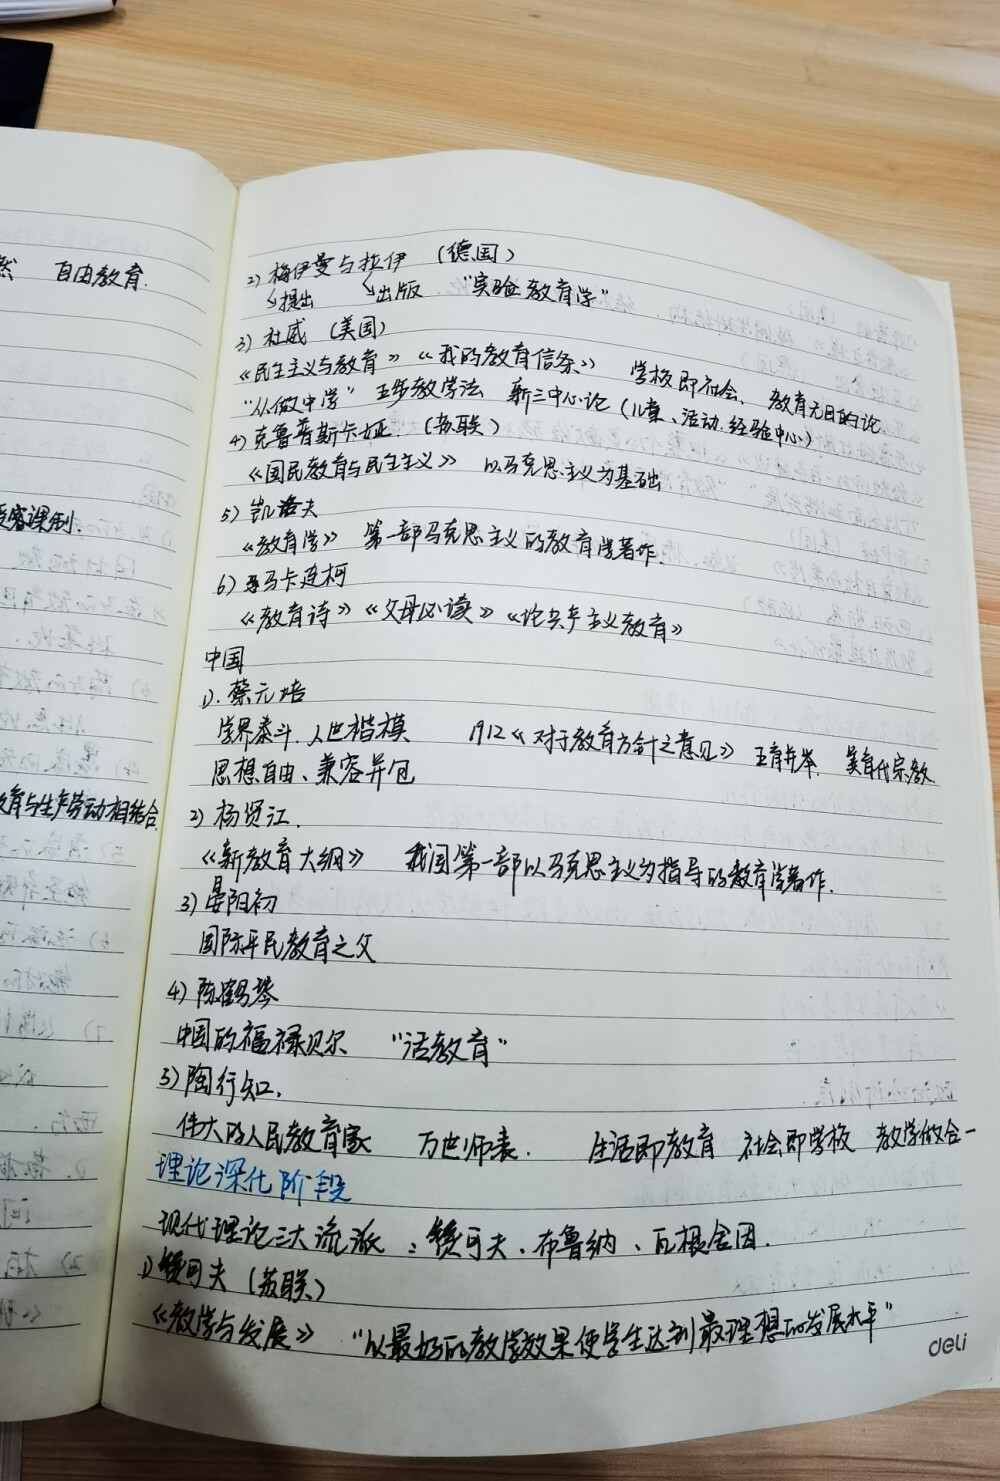 然 自由教育.
受客课制.
教育与生产劳动相结合.
2) 梅伊曼与拉伊 (德国)
↘提出 ↘出版 "实验教育学"
3) 杜威 (美国)
《民主主义与教育》《我的教育信条》 学校即社会、教育无目的论
"从做中学" 五步教学法 新三中心论 (儿童、活动、经验中心)
4) 克鲁普斯卡娅. (苏联)
《国民教育与民主主义》 以马克思主义为基础
5) 凯洛夫
《教育学》 第一部马克思主义的教育学著作.
6) 马卡连柯
《教育诗》《父母必读》《论共产主义教育》
中国
1). 蔡元培
学界泰斗、人世楷模 1912《对于教育方针之意见》 五育并举. 美育代宗教.
思想自由、兼容并包
2) 杨贤江.
《新教育大纲》 我国第一部以马克思主义为指导的教育学著作.
3) 晏阳初
国际平民教育之父
4) 陈鹤琴
中国的福禄贝尔 "活教育"
5) 陶行知.
伟大的人民教育家 万世师表. 生活即教育 社会即学校 教学做合一
理论深化阶段
现代理论三大流派: 赞可夫、布鲁纳、瓦根舍因.
1) 赞可夫 (苏联)
《教学与发展》 "以最好的教学效果使学生达到最理想的发展水平"
deli